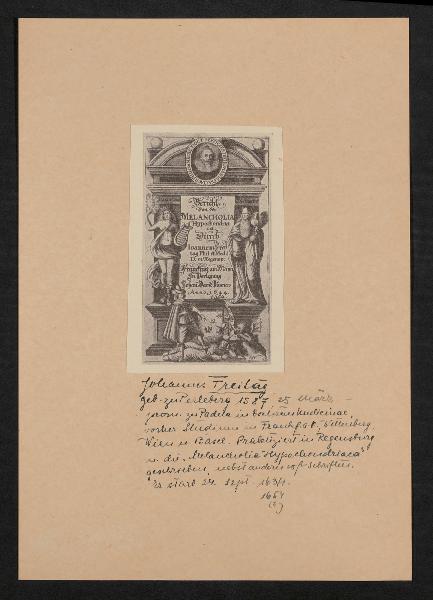 Bericht
Von der
MELANCHOLIA
Hypochondria
Durch
Joannem Frey
tag Phil. et Med.
Franckfurt am Mayn
In Verlegung
Johannes Freitag
geb. zu Perleberg 1587 25 März –
prom. zu Padua in
vorher Studium in Frankf. a. O. Wittenberg
Wien u Basel. Praktiziert in Regensburg
u. die „Melancholia Hypochondriaca“
geschrieben, nebst anderen Schriften.
Er starb 24. Sept. 1634.
1654
(?)